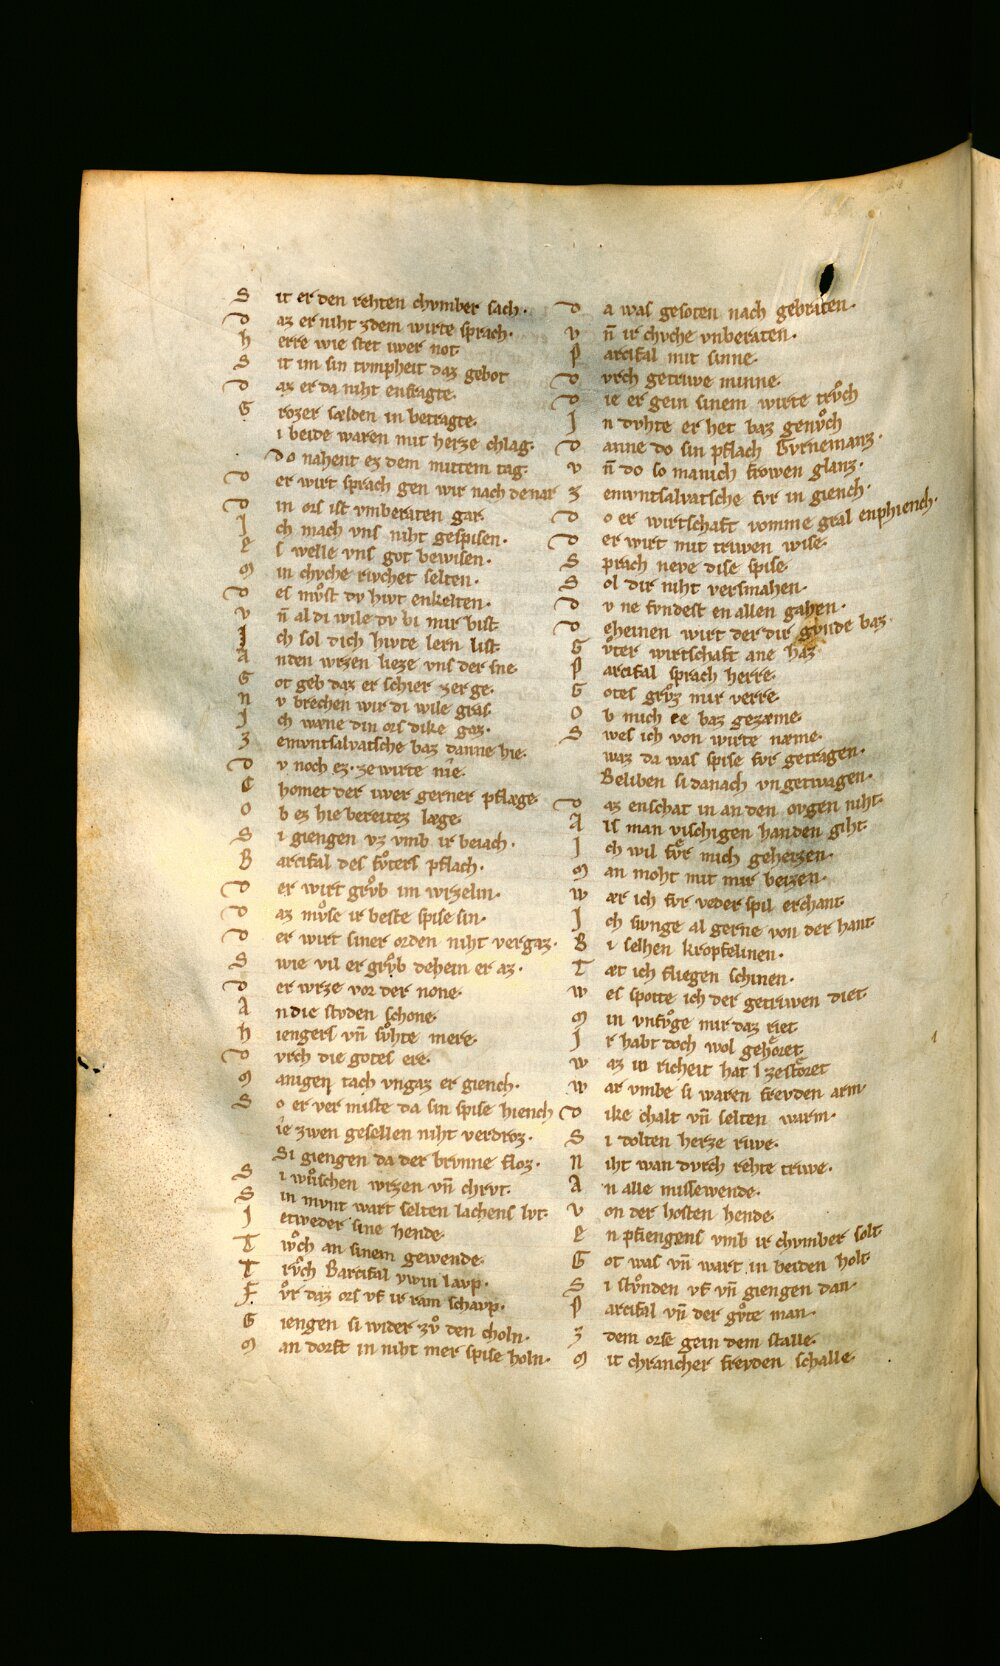 S it er den rehten chvmber sach·
D az er niht zdem wirte sprach·
h erre wie stet iwer not·
S it im sin tvmpheit daz gebot
D az er da niht enfragte·
G rozer sælden in betragte·
i beide waren mit herze chlag·
Do nahent ez dem mittem tag·
D er wirt sprach gen wir nach der nar
D in ors ist vmberaten gar·
J ch mach vns niht gespisen·
E s welle vns got bewisen·
M in chvche rivchet selten·
D es mv̊st dv hivt enkelten·
V n̄ al di wile dv bi mir bist·
J ch sol dich hivte lern list·
A nden wrzen lieze vns der sne·
G ot geb daz er schier zer ge·
N v brechen wir di wile gras·
J ch wæne din ors dike gaz·
Z emvntsalvatsche baz danne hie·
D v noch ez· ze wirte nie·
C homet der iwer gerner pflæge·
O b ez hie bereitez læge·
S i giengen vz vmb ir beiach·
B arcifal des fv̊ters pflach·
D er wirt grv̊b im wrzelin·
D az mv̊se ir beste spise sin·
D er wirt siner orden niht vergaz·
S wie vil er grv̊b dehein er az·
D er wrze vor der none·
A n die stvden schone·
h iengers vn̄ sv̊hte mere·
D vrch die gotes ere·
M anigen tach vngaz er giench·
S o er ver miste da sin spise hiench
ie zwen gesellen niht verdroz·
Si giengen da der brvnne floz·
S i wv̊schen wrzen vn̄ chrvt·
S in mvnt wart selten lachens lvt·
J etweder sine hende·
T wv̊ch an sinem gewende·
T rv̊ch Barcifal ywin lavp·
F v̊r daz ors vf ir ram schavp·
G iengen si wider zv̊ den choln·
M an dorft in niht mer spise holn·
D a was gesoten nach gebraten·
V n̄ ir chvche vnberaten·
P arcifal mit sinne·
D vrch getriwe minne·
D ie er gein sinem wirte trv̊ch
J n dvhte er het baz genv̊ch
D anne do sin pflach Gvrnemanz·
V n̄ do so manich frowen glanz·
Z emvntsalvatsche fvr in giench·
D o er wirtschaft vomme gral enphiench·
D er wirt mit triwen wise·
S prach neve dise spise·
S ol dir niht versmahen·
D v ne fvndest en allen gahen·
D eheinen wirt der dir gvnde baz·
G v̊ter wirtschaft ane haz
P arcifal sprach herre·
G otes grv̊z mir verre·
O b mich ee baz gezæme·
S wes ich von wirte næme·
waz da was spise fvr getragen·
Beliben si danach vngetwagen·
D az enschat in an den ovgen niht·
A ls man vischigen handen giht·
J ch wil fv̊r mich geheizen·
M an moht mit mir beizen·
W ær ich fvr veder spil erchant·
J ch swnge al gerne von der hant
B i selhen kropfelinen·
T æt ich fliegen schinen·
W es spotte ich der getriwen diet·
M in vnfv̊ge mir daz riet
J r habt doch wol gehoret
W az in richeit hat zestoret
W ar vmbe si waren frevden arm·
D ike chalt vn̄ selten warm·
S i dolten herze riwe·
N iht wan dvrch rehte triwe·
A n alle missewende·
V on der hosten hende·
E npfiengens vmb ir chvmber solt·
G ot was vn̄ wart in beiden holt·
S i stv̊nden vf vn̄ giengen dan·
P arcifal vn̄ der gv̊te man·
Z dem orse gein dem stalle·
M it chrancher frevden schalle·